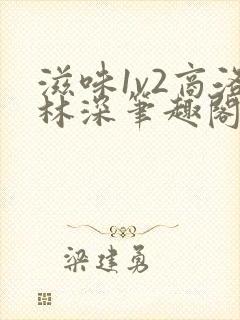 滋味1v2高洛
林深笔趣阁
梁建勇